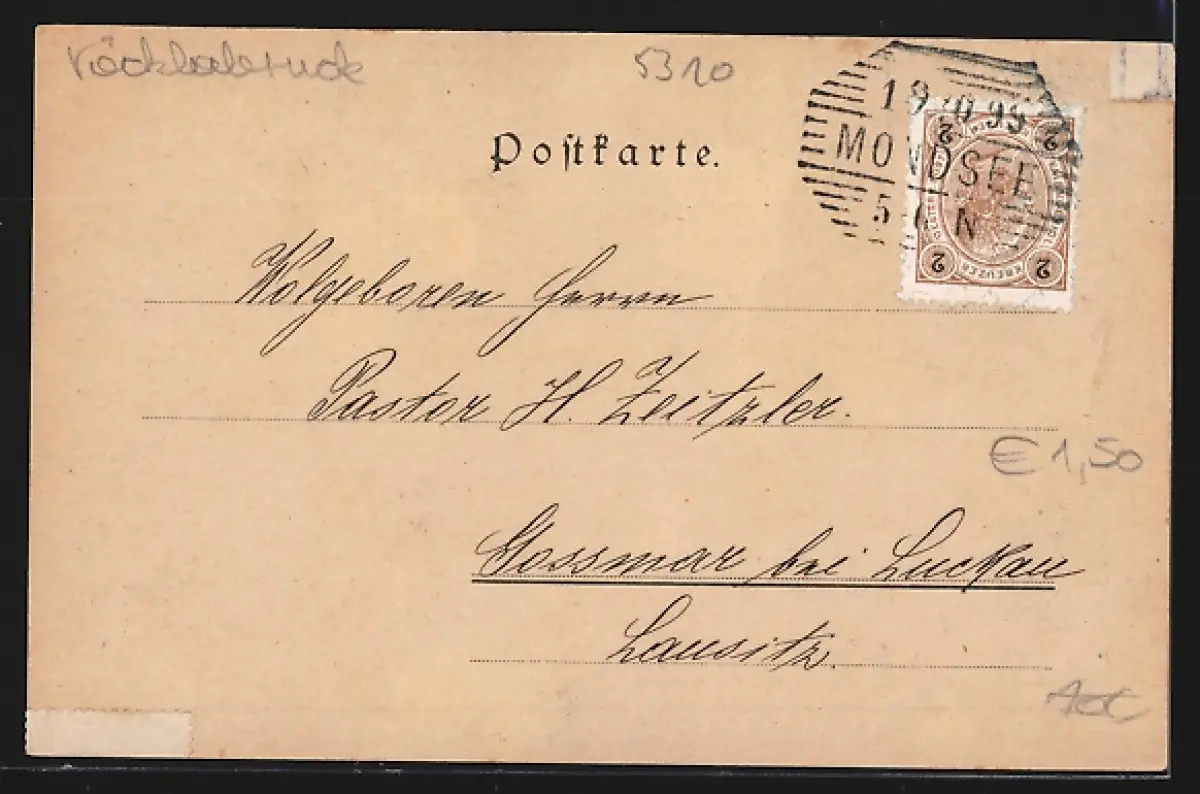 Vöcklabruck 5310
Postkarte.
19 10 99
MONDSEE
5 6 N
2 2
2 KREUZER 2
Wolgeboren Herrn
Pastor H. Zeitzler.
€ 1,50
Gossmar bei Luckau
Lausitz.